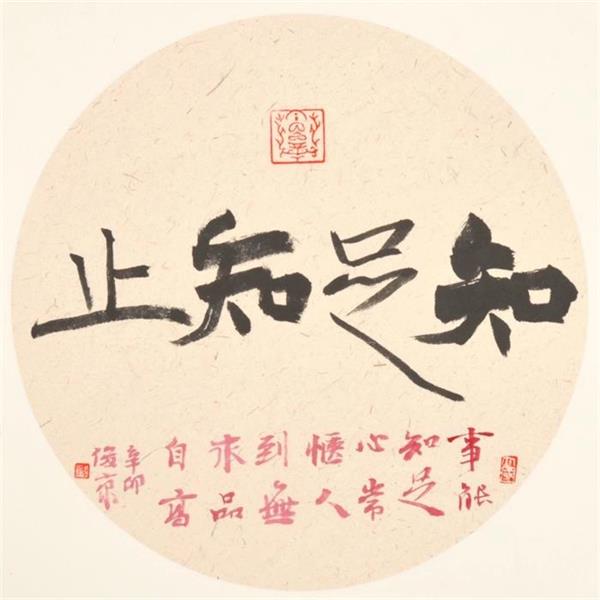 知足知止
事能知足心常愜人到無求品自高
辛卯